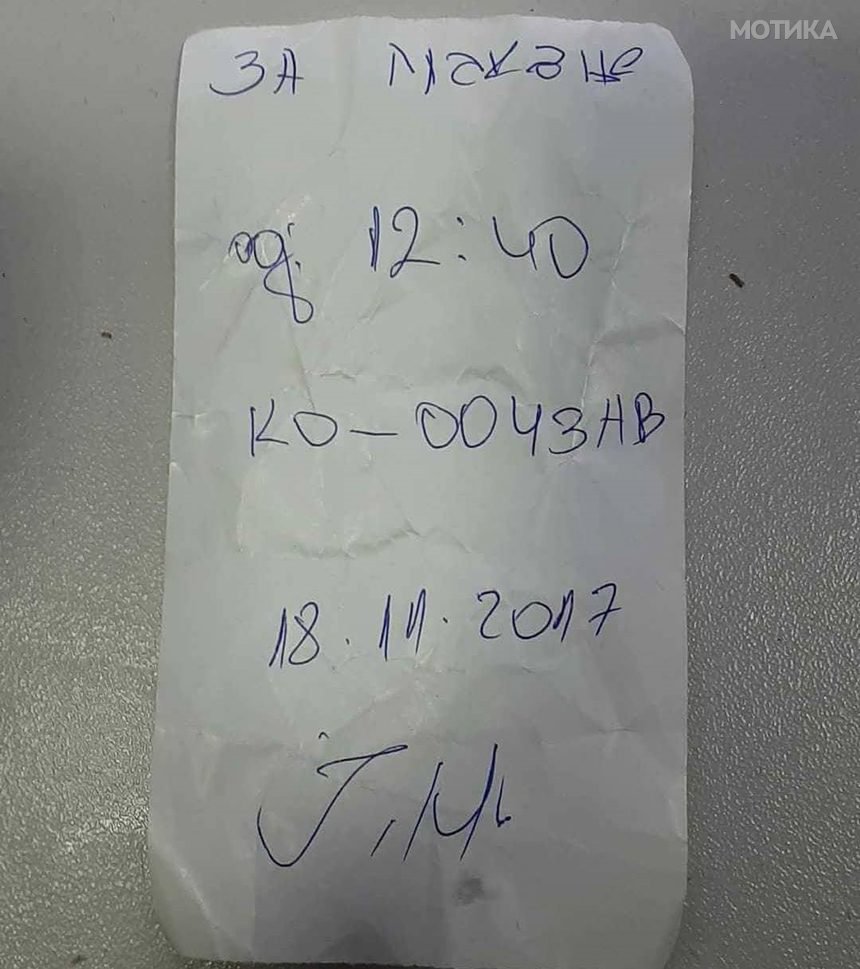 МОТИКА
ЗА
од. 12:40
КО-0043АВ
18.11.2017